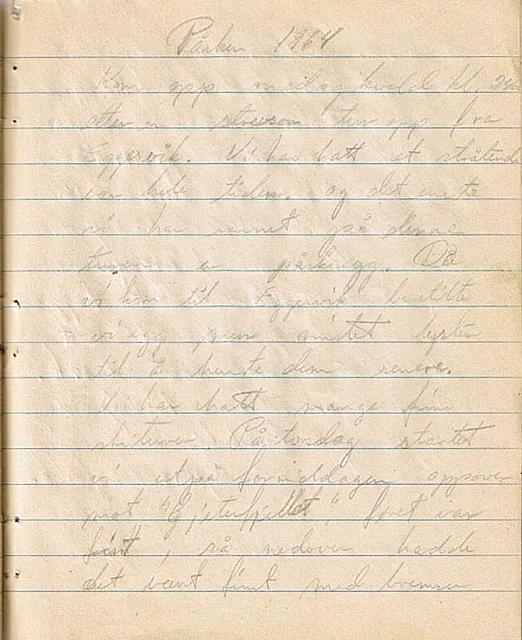 Påsken 1964
Kom opp onsdag kveld kl.
etter en strevsom tur opp fra
Eggesvik. Vi har hatt et strålende
vær hele tiden, og det eneste
vi har savnet på denne
turen er påskeegg. Da
vi kom til Eggesvik bestilte
vi egg, men mistet lysten
til å hente dem senere.
Vi har hatt mange fine
skiturer. På torsdag startet
vi utpå formiddagen oppover
mot "Gjeterfjellet", føret var
fint, så nedover hadde
det vært fint med bremser